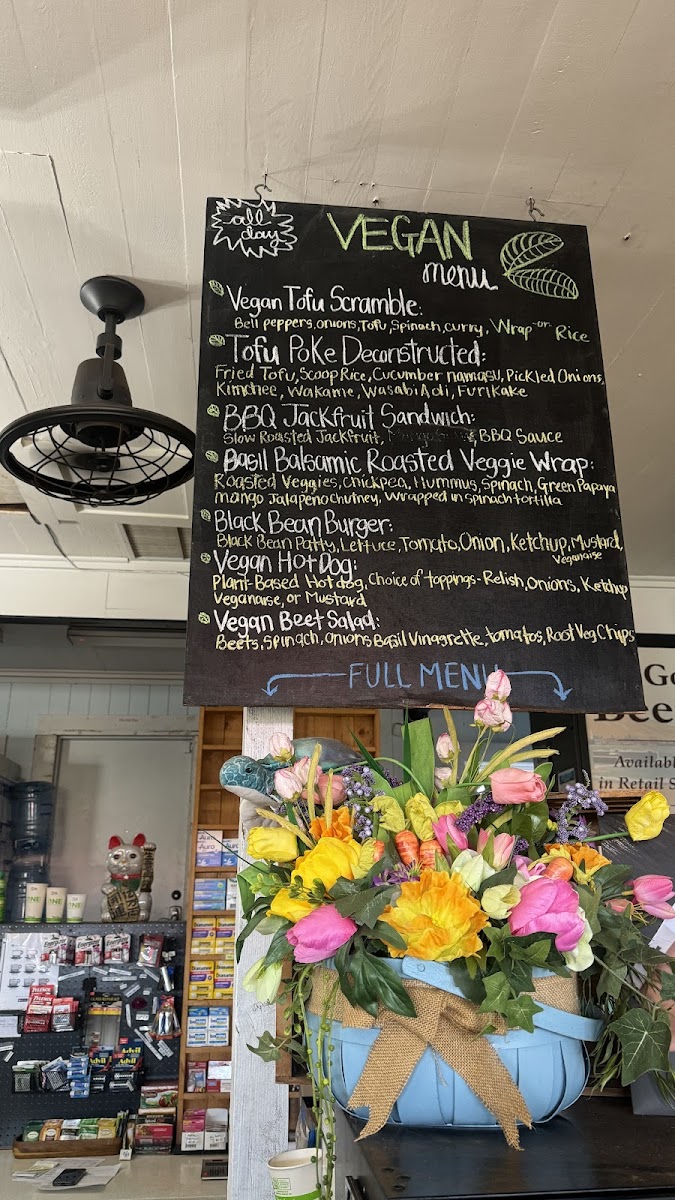 all day
VEGAN
menu
Vegan Tofu Scramble:
Bell peppers, onions, Tofu, Spinach, curry, Wrap -or- Rice
Tofu Poke Deconstructed:
Fried Tofu, Scoop Rice, Cucumber namasu, Pickled Onions,
Kimchee, Wakame, Wasabi Aoli, Furikake
BBQ Jackfruit Sandwich:
Slow Roasted Jackfruit, BBQ Sauce
Basil Balsamic Roasted Veggie Wrap:
Roasted Veggies, Chickpea, Hummus, Spinach, Green Papaya
mango Jalapeno chutney, Wrapped in spinach tortilla
Black Bean Burger:
Black Bean Patty, Lettuce, Tomato, Onion, Ketchup, Mustard,
Veganaise
Vegan Hot Dog:
Plant-Based Hotdog, Choice of toppings - Relish, Onions, Ketchup
Veganaise, or Mustard
Vegan Beet Salad:
Beets, Spinach, onions, Basil Vinagrette, tomatos, Root Veg Chips
FULL MENU
Go
Bee
Available
in Retail S
Auro
Energizer
Advil
Advil